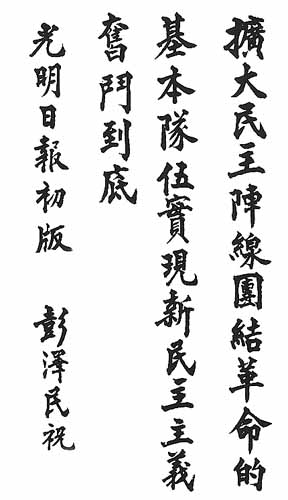 擴大民主陣線團結革命的
基本隊伍實現新民主主義
奮鬥到底
光明日報初版
彭澤民祝